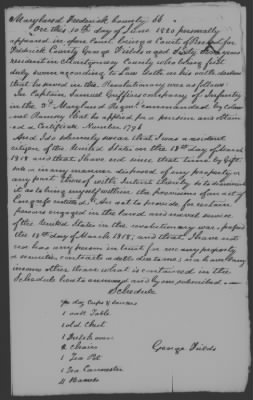 Maryland Frederick County SS.
On this 10th day of June 1820 personally
appeared in open Court being a Court of Record for
Frederick County George Fields aged Sixty three years
resident in Montgomery County who being first
duly sworn according to Law doth on his oath declare
that he served in the Revolutionary war as follows
In Captain Samuel Griffiths company of Infantry
in the 3d Maryland Regimt commanded by Colonel
Ramsey that he applied for a pension and obtain
ed a Certificate Number 1798
And I do solemnly swear that I was a resident
citizen of the United States on the 18th day of March
1818 and that I have not since that time by Gift
sale or in any manner disposed of my property or
any part thereof with intent thereby to diminish
it as to bring myself within the provisions of an act of
Congress entitled An act to provide for certain
persons engaged in the land and naval service
of the United States in the revolutionary war passed
the 18th day of March 1818; and that I have not
nor has any person in trust for me any property
or securities contracts or debts due to me; nor have I any
income other than what is contained in the
Schedule hereto annexed and by me subscribed
Schedule
day Cups & saucers
1 Table
1 old Chest
1 Dutch oven
2 Chairs
1 Tea Pot
1 Tea Cannester
4 Barrels
George Fields